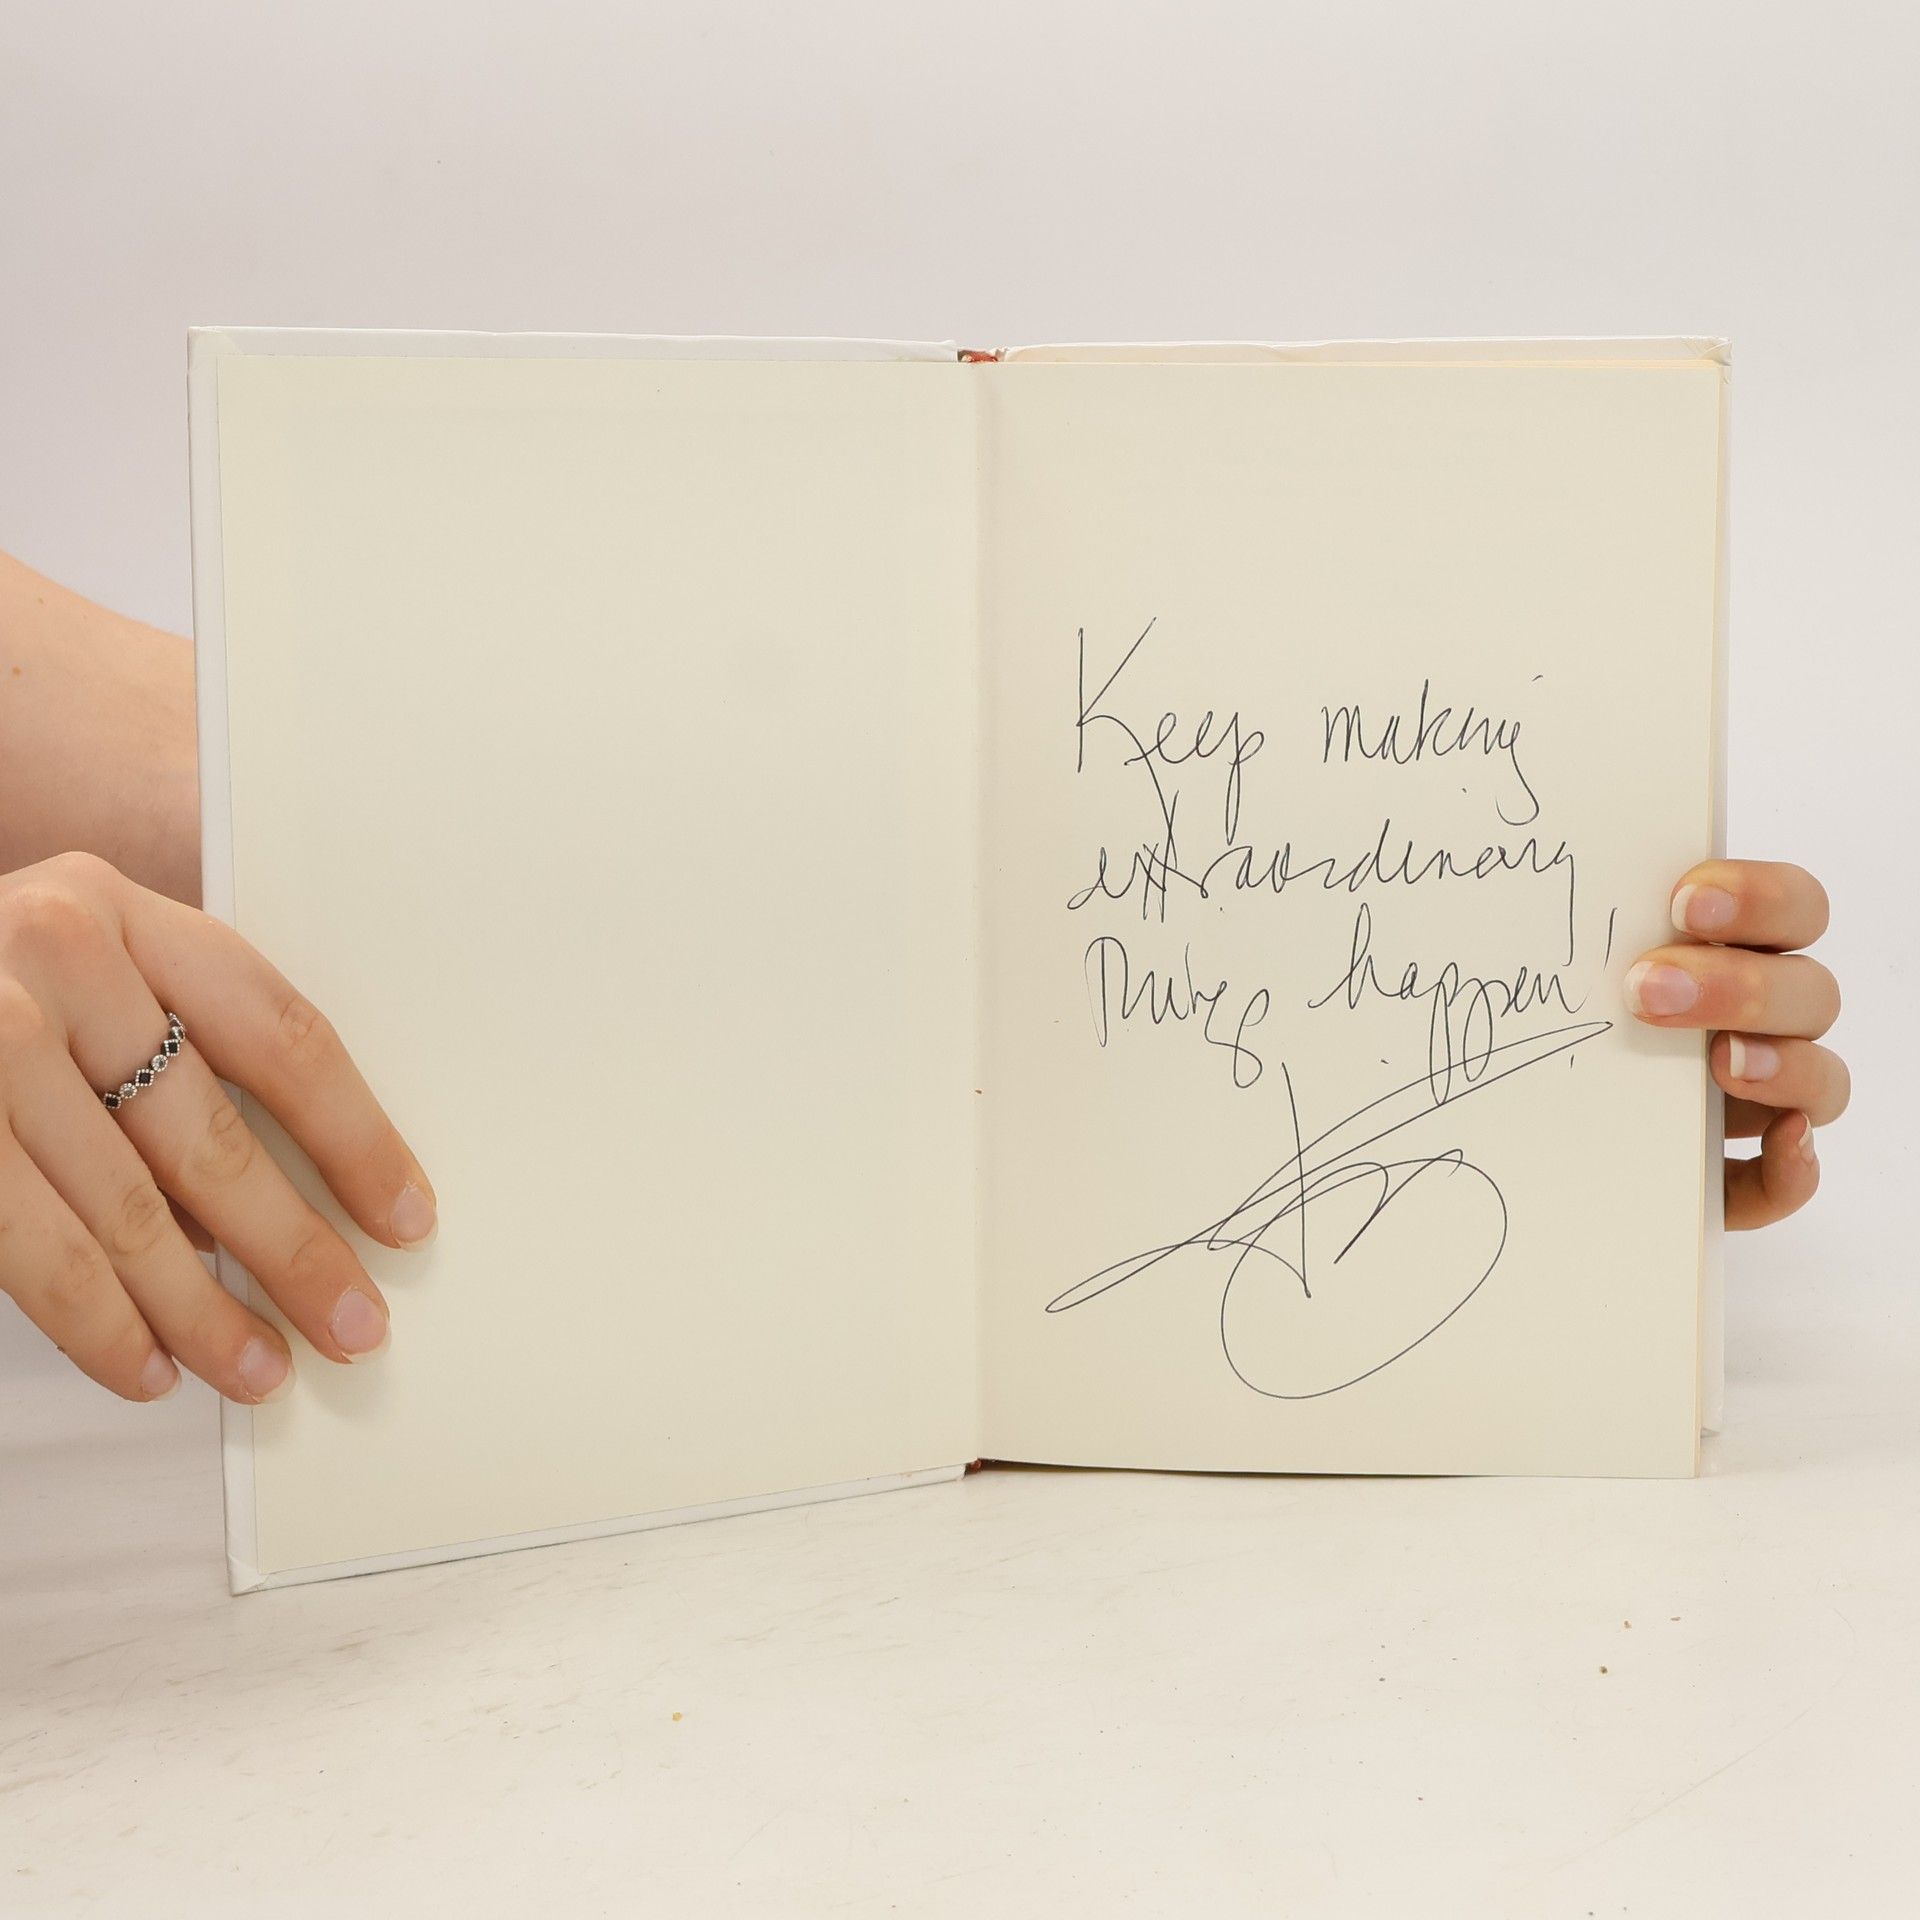 Keep making
extraordinary
things happen!